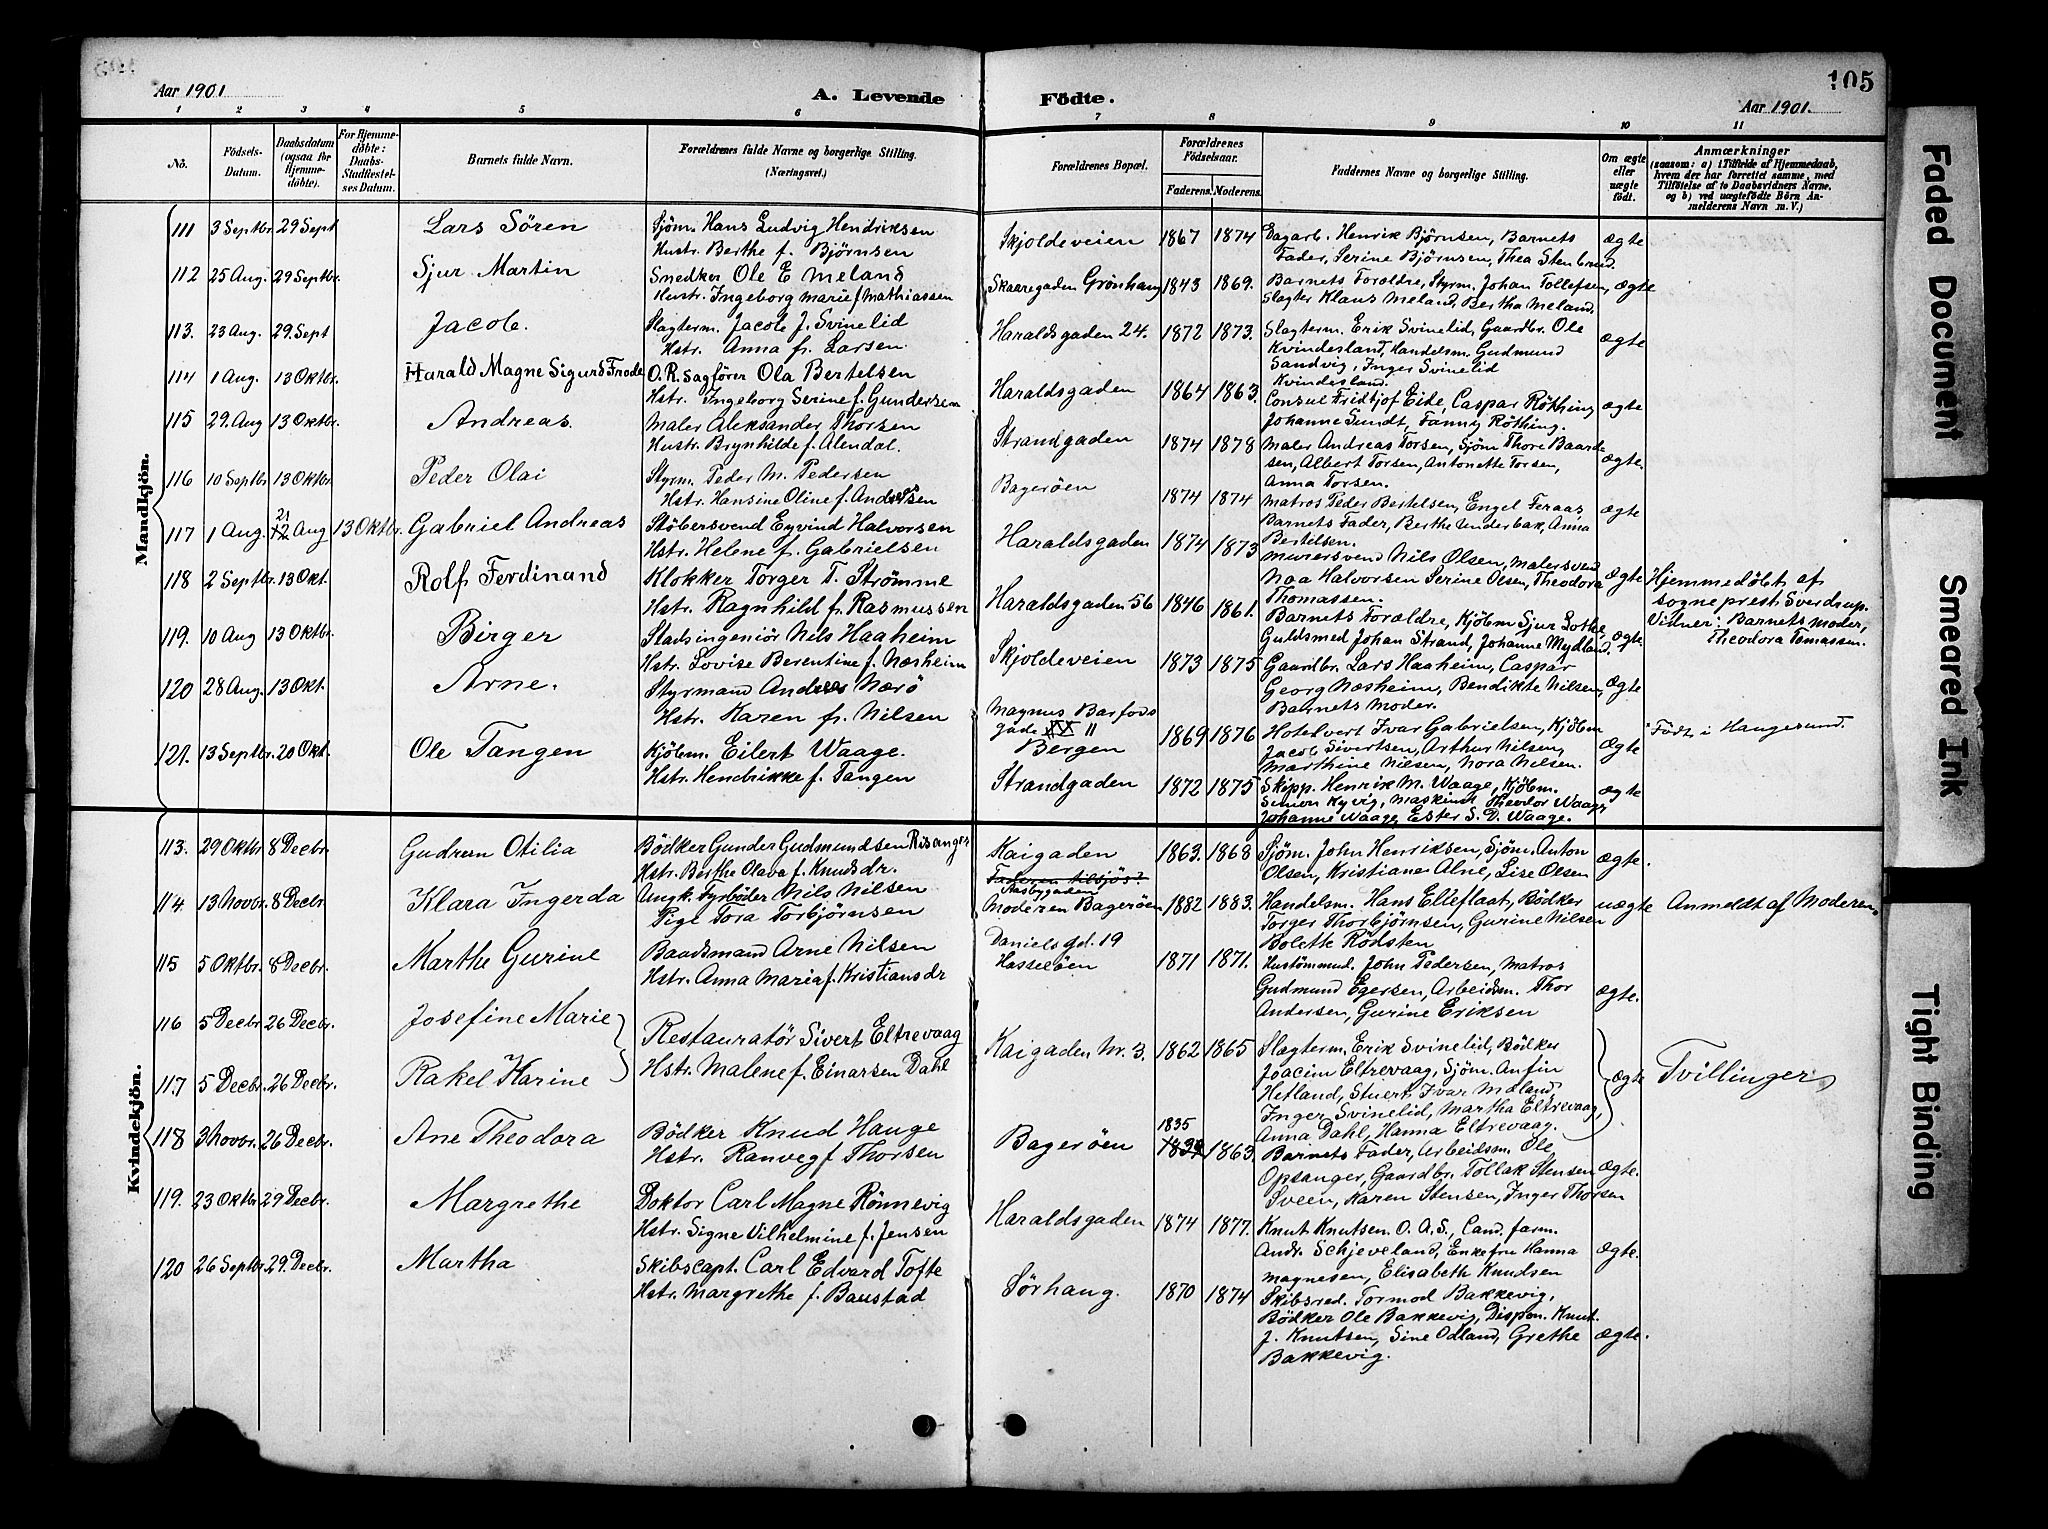 Aar 1901
A. Levende
Födte.
105
Aar 1901.
1 2 3 4 5 6 7 8 9 10 11
No.
Födsels-Datum.
Daabsdatum (ogsaa for Hjemme-döbte).
For Hjemme-döbte: Daabs-Stadfæstel-ses Datum.
Barnets fulde Navn.
Forældrenes fulde Navne og borgerlige Stilling. (Næringsvei.)
Forældrenes Bopæl.
Forældrenes Födselsaar.
Faderens. Moderens.
Faddernes Navne og borgerlige Stilling.
Om ægte eller uægte födt.
Anmærkninger
(saasom: a) i Tilfælde af Hjemmedaab,
hvem der har forrettet samme, med
Tilföielse af to Daabsvidners Navne,
og b) ved uægtefödte Börn An-
melderens Navn m. V.)
Mandkjön.
111 3 Septbr. 29 Sept Lars Sören Sjöm. Hans Ludvig Hendriksen
Hustr. Berthe f. Bjørnsen
Skjoldeveien 1867 1874 Dagarb. Henrik Bjørnsen, Barnets
Fader, Serine Bjørnsen, Thea Stenbrud. ægte
112 25 Aug. 29 Septbr. Sjur Martin Snedker Ole E Meland
Hustr. Ingeborg Marie f Mathiassen
Skaaregaden Grønhaug 1843 1869. Barnets Forældre, Styrm. Johan Tollefsen,
Slagter Klaus Meland, Bertha Meland. ægte
113. 23 Aug. 29. Sept Jacob. Slagterm. Jacob J. Svinelid
Hstr. Anna f. Larsen.
Haraldsgaden 24. 1872 1873. Slagterm. Erik Svinelid, Gaardbr. Ole
Kvindesland, Handelsm. Gudmund
Sandvig, Inger Svinelid
Kvindesland. ægte
114 1 Aug. 13 Oktbr. Harald Magne Sigurd Frode O.R. Sagfører Ola Bertelsen
Hstr. Ingeborg Serine f. Gundersen
Haraldsgaden 1864 1863. Consul Fridtjof Eide, Caspar Röthing
Johanne Sundt, Fanny Röthing. ægte
115 29. Aug 13 Oktbr. Andreas. Maler Aleksander Thorsen
Hustr. Brynhilde f. Alendal.
Strandgaden 1874 1878 Maler Andreas Torsen, Sjöm Thore Baard-
sen, Albert Torsen, Antonette Torsen,
Anna Torsen. ægte.
116 10 Septbr 13 Oktbr. Peder Olai Styrm. Peder M. Pedersen
Hstr. Hansine Oline f. Andersen
Bagerøen 1874 1874 Matros Peder Bertelsen, Engel Feraas,
Barnets Fader, Berthe Underbak, Anna
Bertelsen. ægte
117 1 Aug. 21 Aug 13 Oktbr. Gabriel Andreas Stöbersvend Eyvind Halvorsen
Hstr. Helene f. Gabrielsen
Haraldsgaden 1874 1873 Murersvend Nils Olsen, Malersvend
Noa Halvorsen Serine Olsen, Theodora
Thomassen. ægte Hjemmedöbt af
sogneprest Sverdrup.
Vidner: Barnets Moder,
Theodora Tomassen.
118 2 Septbr. 13 Okt. Rolf Ferdinand Klokker Torger T. Strømme
Hstr. Ragnhild f. Rasmussen
Haraldsgaden 56 1846 1861. Barnets Forældre, Kjöbm Sjur Lothe,
Guldsmed Johan Strand, Johanne Mydland. ægte.
119. 10 Aug 13 Oktbr. Birger Stadsingeniör Nils Haaheim
Hstr. Lovise Berentine f. Næsheim
Skjoldeveien 1873 1875 Gaardbr. Lars Haaheim, Caspar
Georg Næsheim, Bendikte Nilsen,
Barnets Moder. ægte
120 28 Aug. 13 Okt. Arne. Styrmand Andreas Nærö
Hstr. Karen f. Nilsen
Magnus Barfods
gade 11
Bergen 1869 1876 Hotelvert Ivar Gabrielsen, Kjöbm
Jacob Sivertsen, Arthur Nilsen,
Marthine Nilsen, Nora Nilsen. ægte Födt i Haugesund.
121. 13 Septbr. 20 Okt. Ole Tangen Kjöbm. Eilert Waage.
Hstr. Hendrikke f. Tangen
Strandgaden 1872 1875 Skipp. Henrik M. Waage, Kjöbm.
Simon Kyvig, Maskinist Theodor Waage,
Johanne Waage, Ester S. D. Waage. ægte
Kvindekjön.
113. 29 Oktbr 8 Decbr. Gudrun Otilia Bödker Gunder Gudmundsen Risanger
Hstr. Berthe Olava f. Knudsdr.
Kaigaden 1863. 1868 Sjöm. John Henriksen, Sjöm. Anton
Olsen, Kristiane Alne, Lise Olsen ægte.
114. 13 Novbr. 8 Decbr Klara Ingerda Ungk. Fyrböder Nils Nilsen
Pige Tora Torbjørnsen
Faderen tilsjøs?
Aasbygaden
Moderen Bagerøen 1882 1883. Handelsm. Hans Elleflaat, Bödker
Torger Thorbjørnsen, Gurine Nilsen
Bolette Rödsten uægte Anmeldt af Moderen.
115 5 Oktbr. 8 Decbr. Marthe Gurine Baadsmand Arne Nilsen
Hstr. Anna Maria f. Kristiansdr
Daniels gd. 19
Hasseløen 1871 1871. Hustömmed. John Pedersen, Matros
Gudmund Egersen, Arbeidsm. Thor
Andersen, Gurine Eriksen ægte.
116 5 Decbr 26 Decbr. Josefine Marie
117 5 Decbr. 26 Decbr. Rakel Karine
Restauratør Sivert Eltrevaag
Hstr. Malene f. Einarsen Dahl
Kaigaden Nr. 3. 1862 1865 Slagterm. Erik Svinelid, Bödker
Joacim Eltrevaag, Sjöm. Anfin
Hetland, Stuert Ivar Meland,
Inger Svinelid, Martha Eltrevaag,
Anna Dahl, Hanna Eltrevaag. ægte Tvillinger
118 3 Novbr. 26 Decbr. Ane Theodora Bödker Knud Hauge
Hstr. Ranveg f Thorsen
Bagerøen 1835 1863. Barnets Fader, Arbeidsm. Ole
Opsanger, Gaardbr. Tollak Stensen
Sveen, Karen Stensen, Inger Thorsen ægte.
119. 23 Oktbr. 29 Decbr. Margrethe Doktor Carl Magne Rönnevig
Hstr. Signe Vilhelmine f. Jensen
Haraldsgaden 1874 1877. Knut Knutsen O. A. S., Cand. farm.
Andr. Schjeveland, Enkefru Hanna
Magnesen, Elisabeth Knudsen ægte.
120 26 Septbr. 29. Decbr. Martha Skibscapt. Carl Edvard Tofte
Hstr. Margrethe f. Baustad
Sørhaug. 1870 1874 Skibsred. Tormod Bakkevig,
Bödker Ole Bakkevig, Dispon. Knut
J. Knutsen, Sine Odland, Grethe
Bakkevig. ægte.
Faded Document
Smeared Ink
Tight Binding